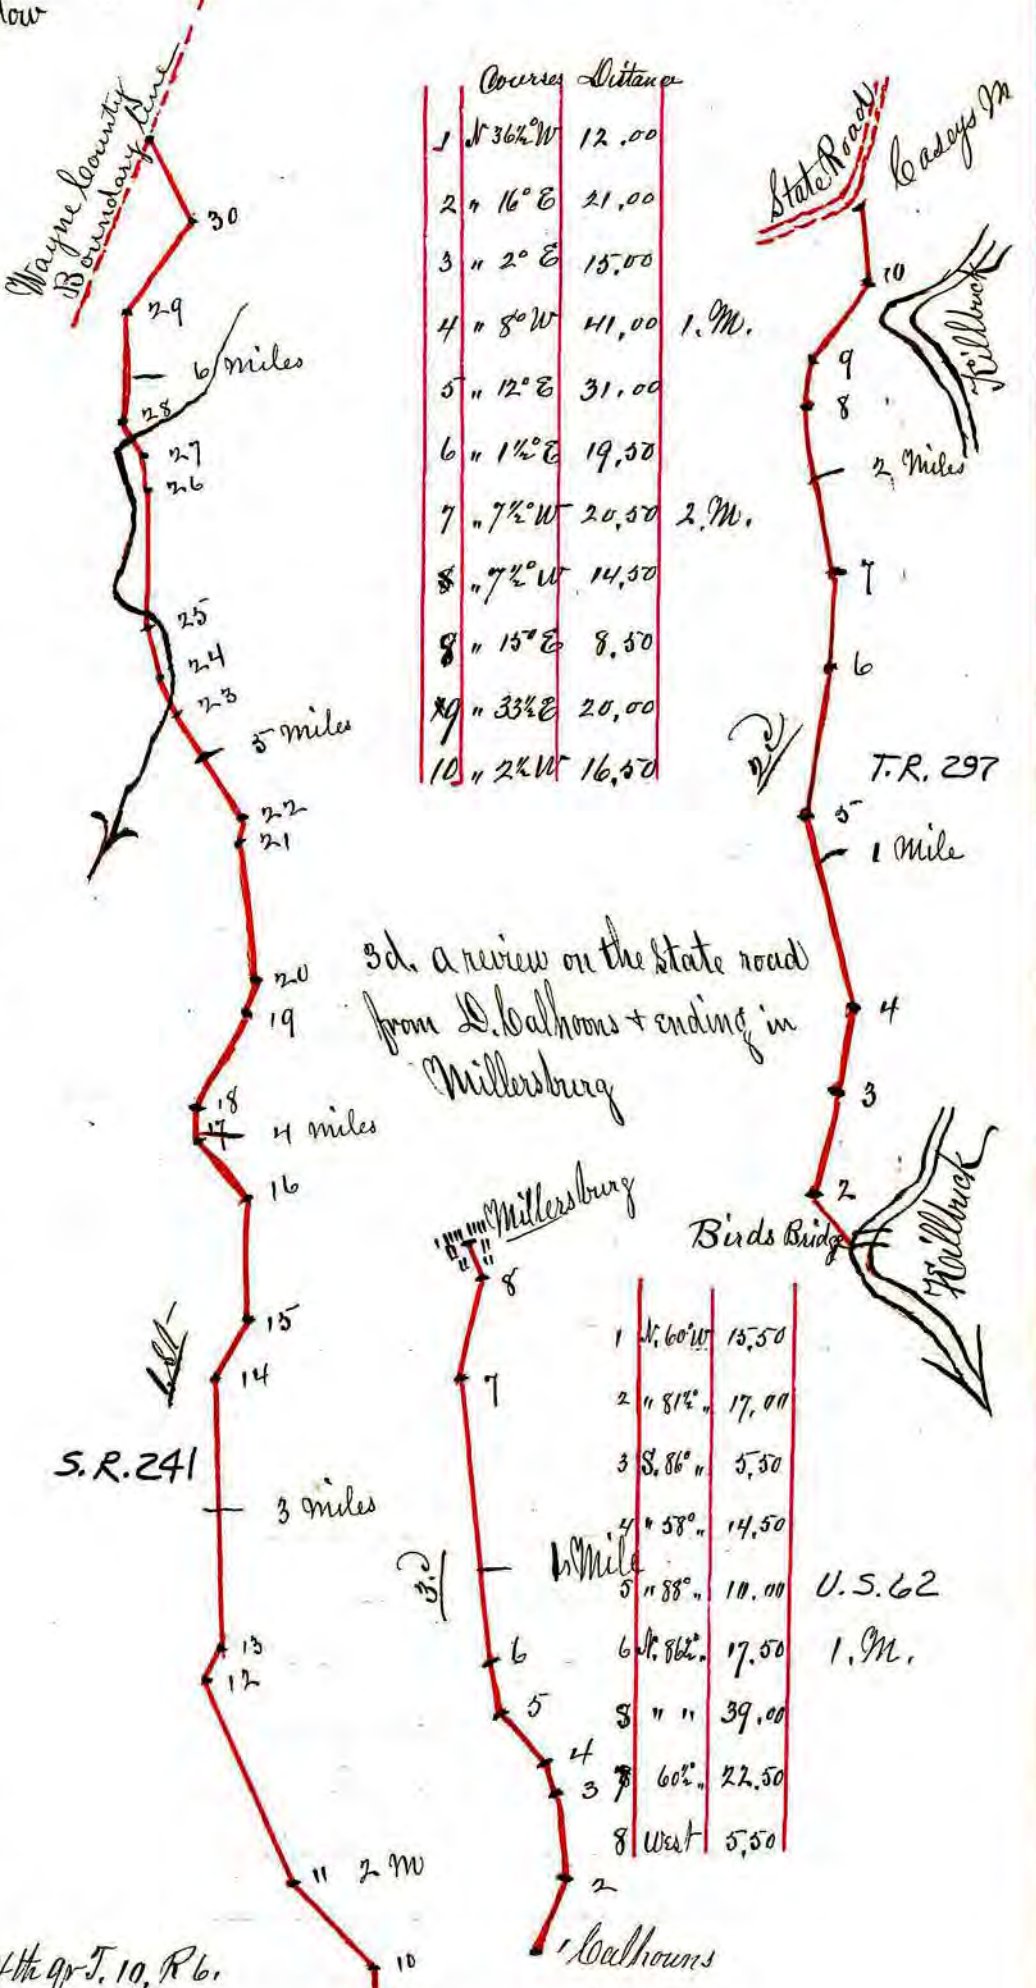 Wayne County
Boundary Line
30
29
6 miles
28
27
26
25
24
23
5 miles
22
21
20
19
18
17
4 miles
16
15
14
1st
S.R. 241
3 miles
13
12
11 2 M
10
4th qr T. 10, R 6.
Courses Distance
1 N 36½° W 12.00
2 " 16° E 21,00
3 " 2° E 15,00
4 " 8° W 41,00 1. M.
5 " 12° E 31.00
6 " 1½° E 19,50
7 " 7½° W 20,50 2. M.
8 " 7½° W 14,50
8 " 15° E 8.50
9 " 33½ E 20,00
10 " 2½ W 16,50
State Road
Caseys M
10
Killbuck
9
8
2 Miles
7
6
2d
T.R. 297
5
1 Mile
4
3
2
Birds Bridge
Killbuck
3d. a review on the State road
from D. Calhoons + ending in
Millersburg
Millersburg
8
7
3d
1 Mile
6
5
4
3
2
1 Calhouns
1 N. 60° W 15,50
2 " 81½° " 17,00
3 S. 86° " 5,50
4 " 58° " 14,50
5 " 88° " 10.00 U.S. 62
6 N. 86½° " 17.50 1. M.
8 " " 39,00
7 60½° " 22,50
8 West 5,50